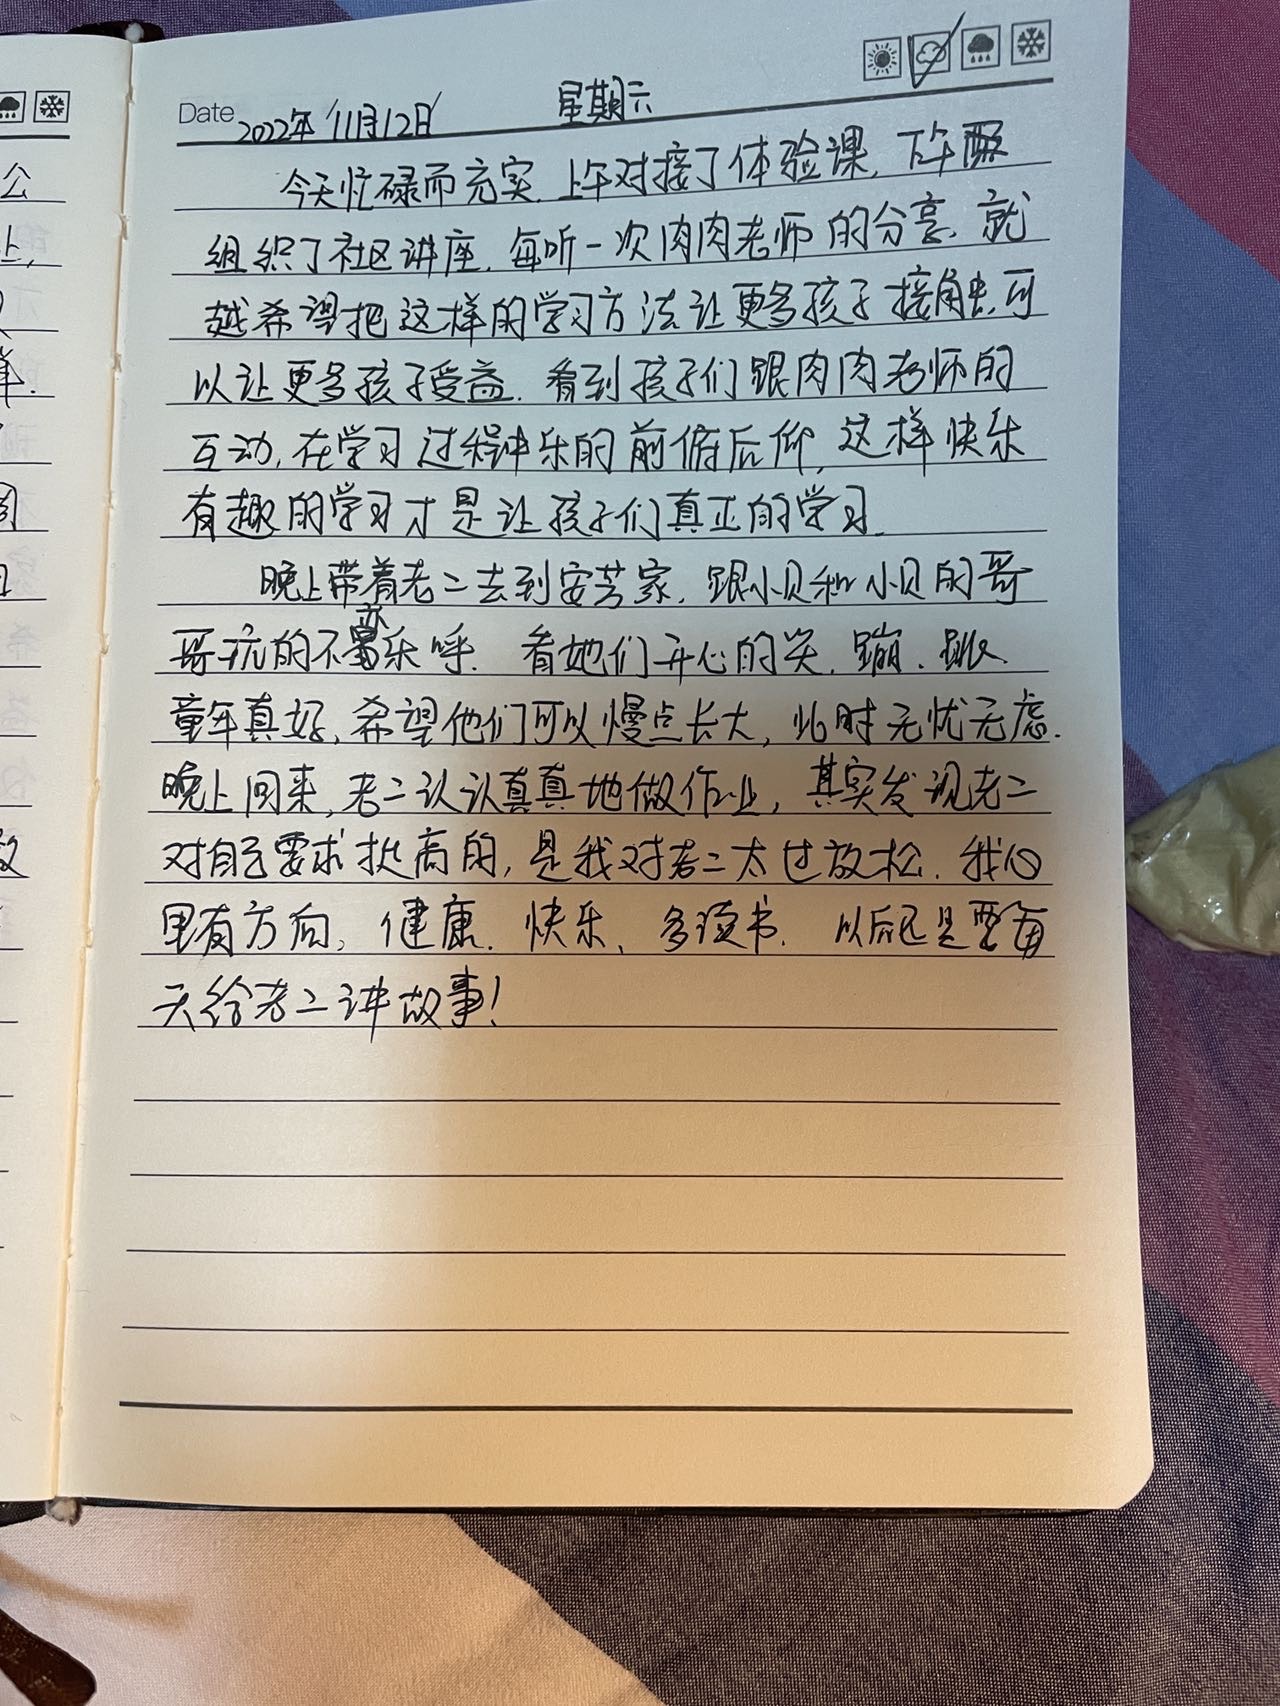 Date 2022年11月12日 星期六
今天忙碌而充实.上午对接了体验课,下午
组织了社区讲座.每听一次肉肉老师的分享,就
越希望把这样的学习方法让更多孩子接触,可
以让更多孩子受益.看到孩子们跟肉肉老师的
互动,在学习过程中乐的前俯后仰,这样快乐
有趣的学习才是让孩子们真正的学习.
晚上带着老二去到安芳家,跟小贝和小贝的哥
哥玩的不亦乐呼.看她们开心的笑、蹦、跳.
童年真好,希望他们可以慢点长大,此时无忧无虑.
晚上回来,老二认认真真地做作业,其实发现老二
对自己要求挺高的,是我对老二太过放松.我心
里有方向,健康、快乐、多读书.以后还是要每
天给老二讲故事!
公
上,
单.